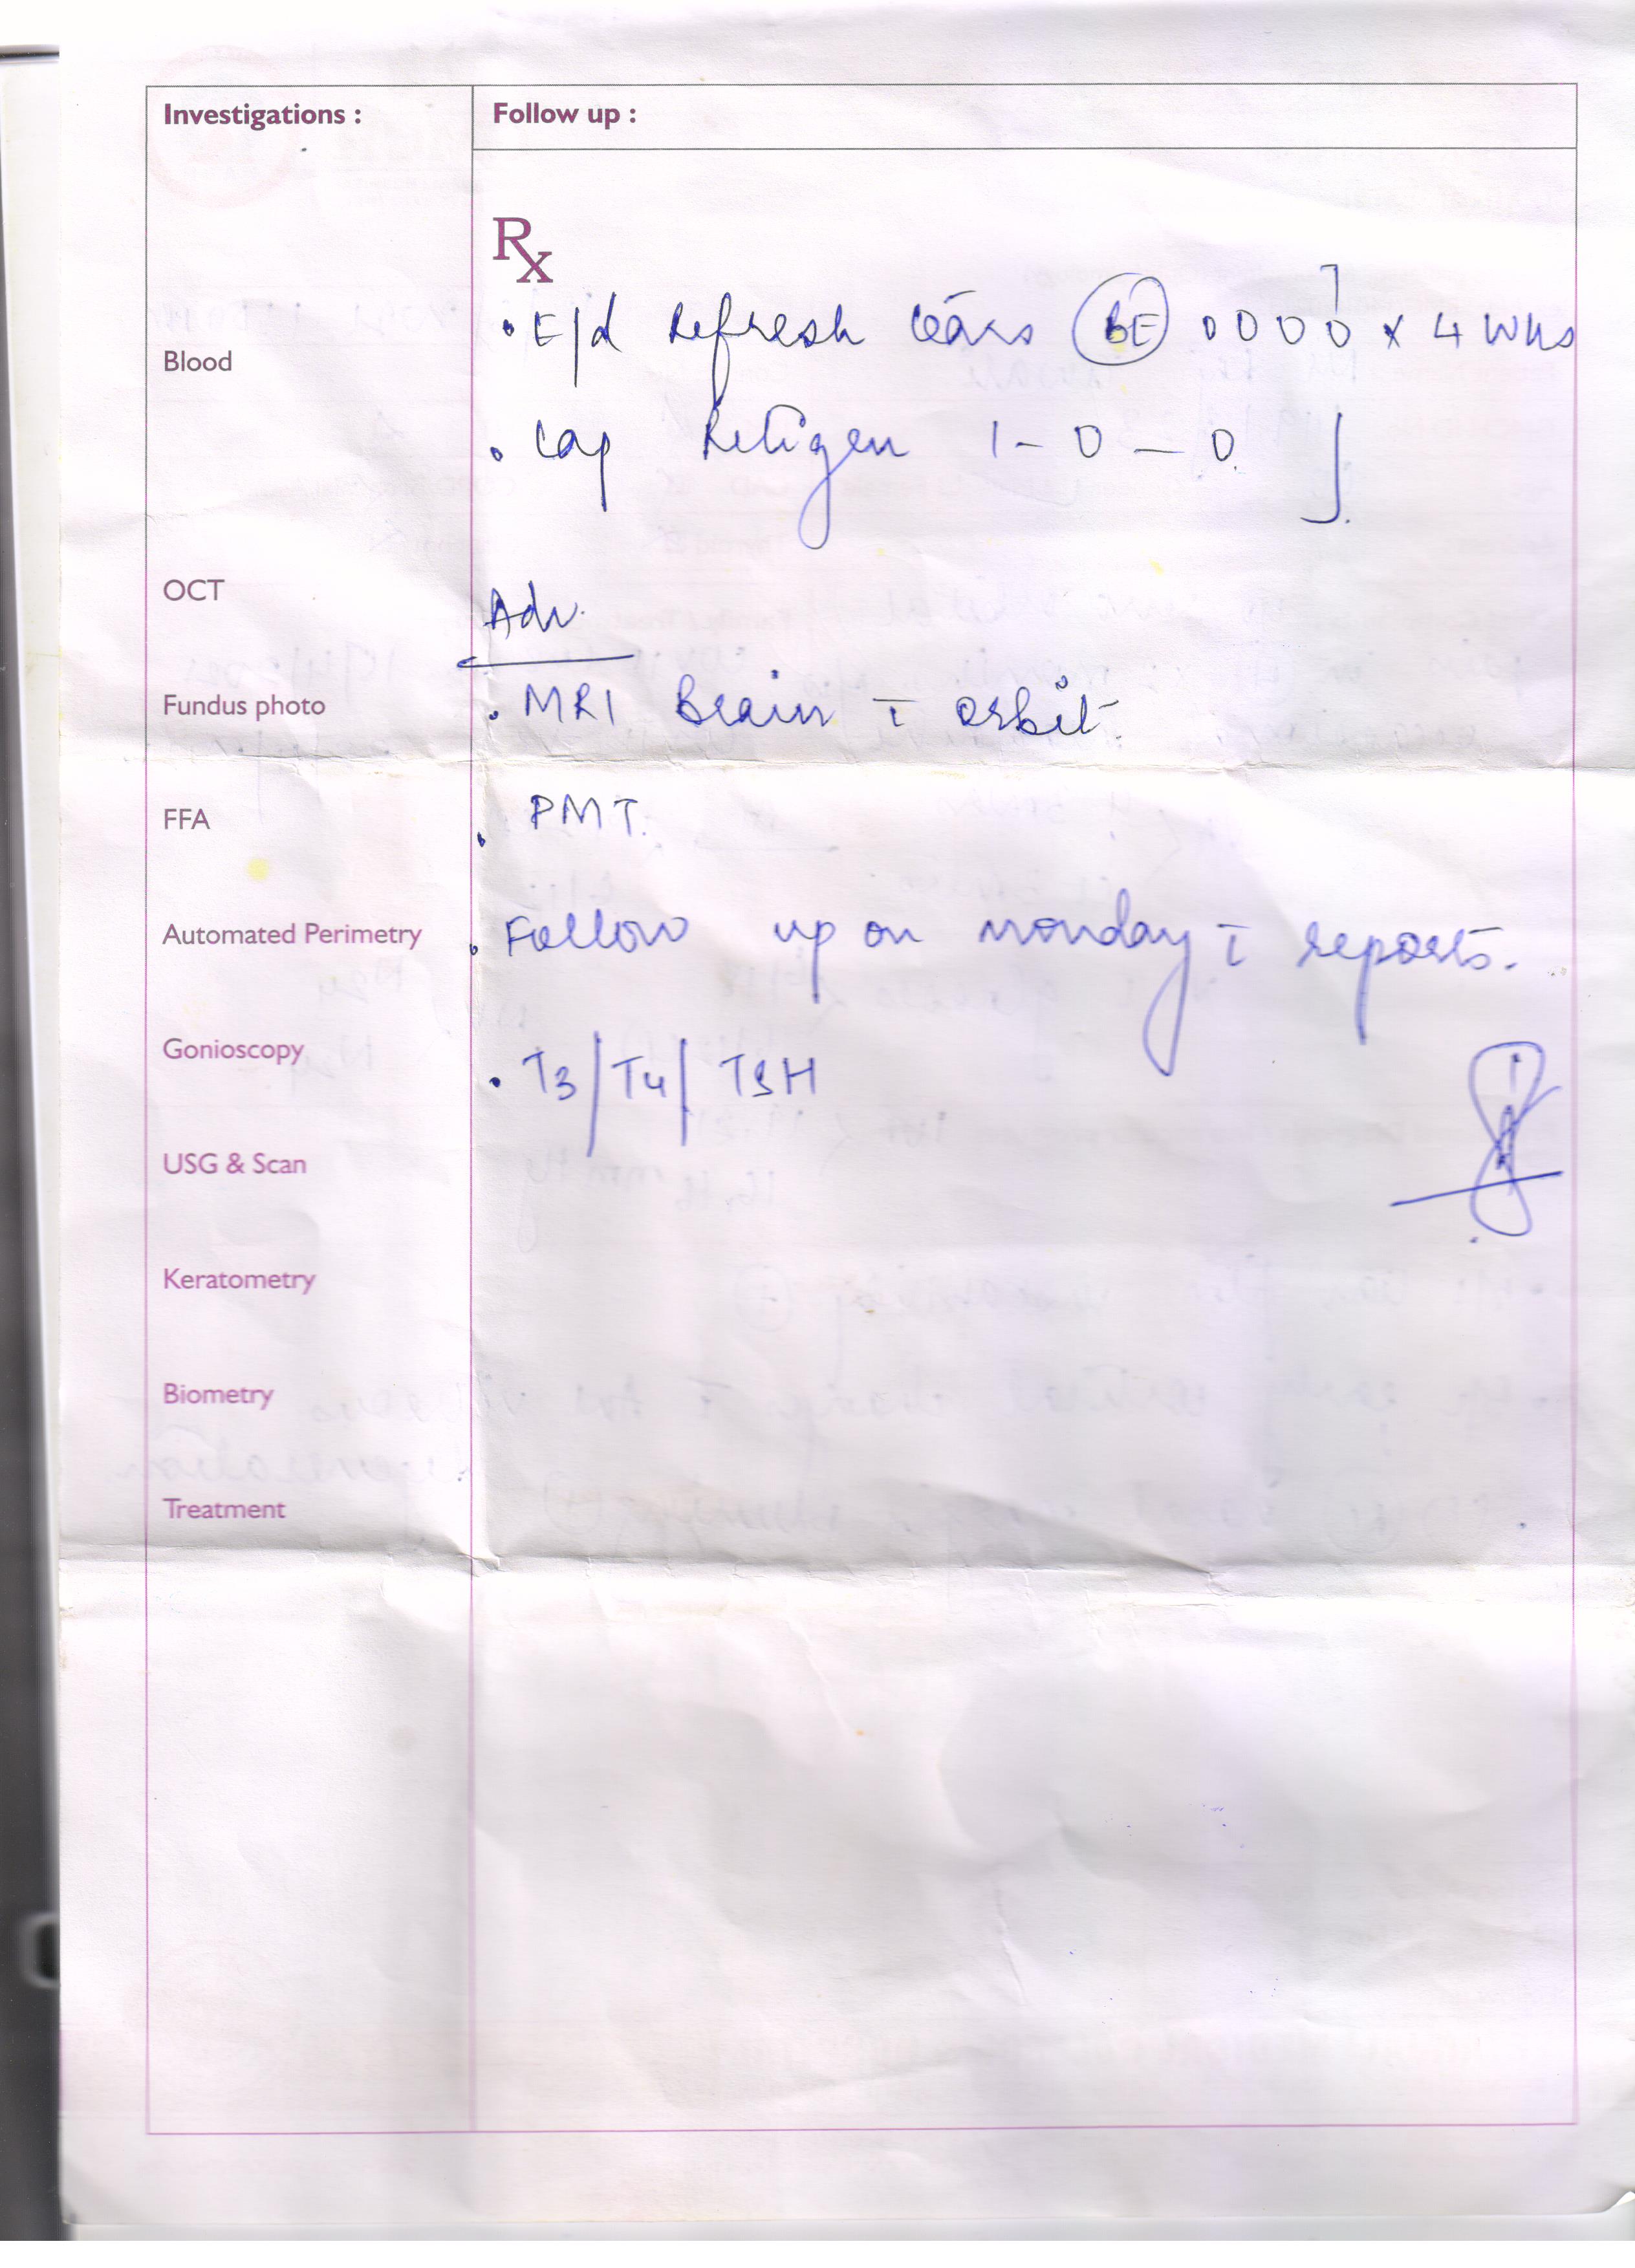 Investigations :
Follow up :
Rx
• E/d Refresh tears BE 0 0 0 0 x 4 wks
Blood
• Cap Retigen 1 - 0 - 0
OCT
Adv.
Fundus photo
• MRI Brain c̄ orbit.
FFA
• PMT.
Automated Perimetry
• Follow up on monday c̄ reports.
Gonioscopy
• T3/T4/TSH
USG & Scan
Keratometry
Biometry
Treatment